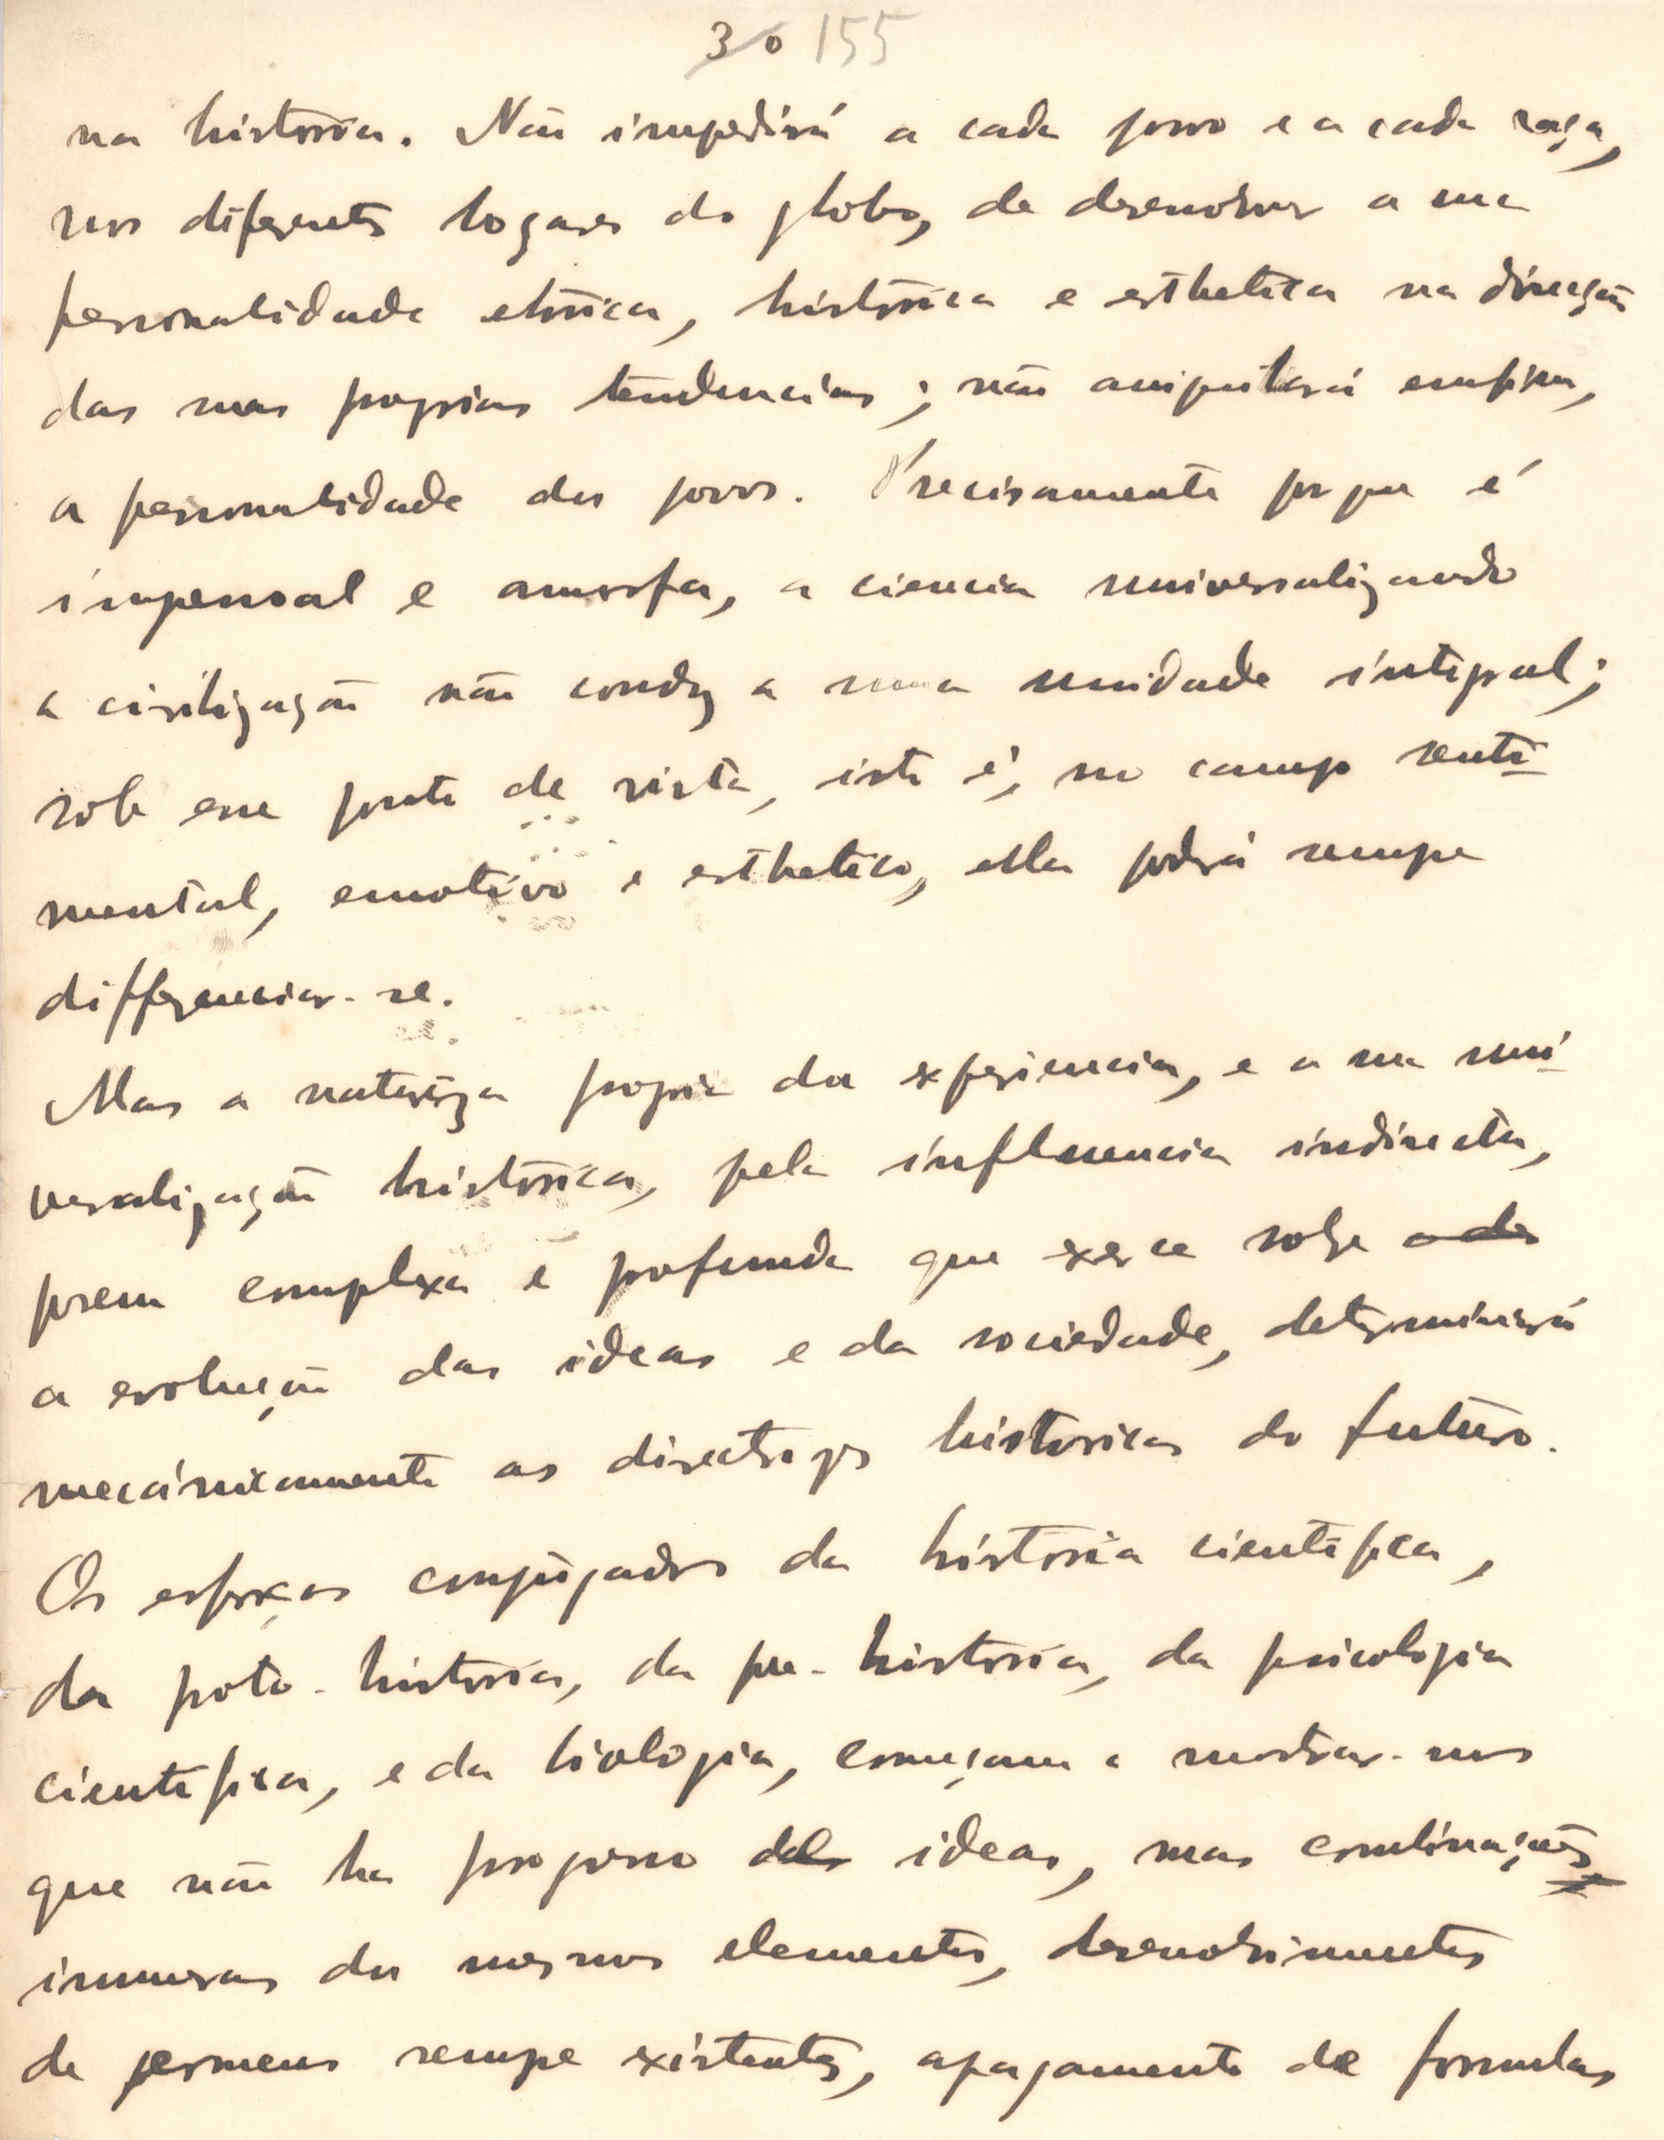 30 155
na historia. Não impedirá a cada povo e a cada raça,
nos diferentes logares do globo, de desenvolver a sua
personalidade etnica, historica e esthetica na direcção
das suas proprias tendencias; não amputará emfim,
a personalidade dos povos. Precisamente porque é
impessoal e amorfa, a ciencia universalizando
a civilização não conduz a uma unidade integral;
sob esse ponto de vista, isto é, no campo senti-
mental, emotivo e esthetico, ella poderá sempre
differenciar-se.
Mas a natureza propria da experiencia, e a sua uni-
versalização historica, pela influencia indirecta,
porem complexa e profunda que exerce sobre
a evolução das ideas e da sociedade, determinará
mecánicamente as directrizes historicas do futuro.
Os esforços conjugados da historia cientifica,
da proto-historia, da pre-historia, da psicologia
cientifica, e da biologia, começam a mostrar-nos
que não ha progresso das ideas, mas combinações
inumeras dos mesmos elementos, desenvolvimentos
de germens sempre existentes, apagamento de formulas